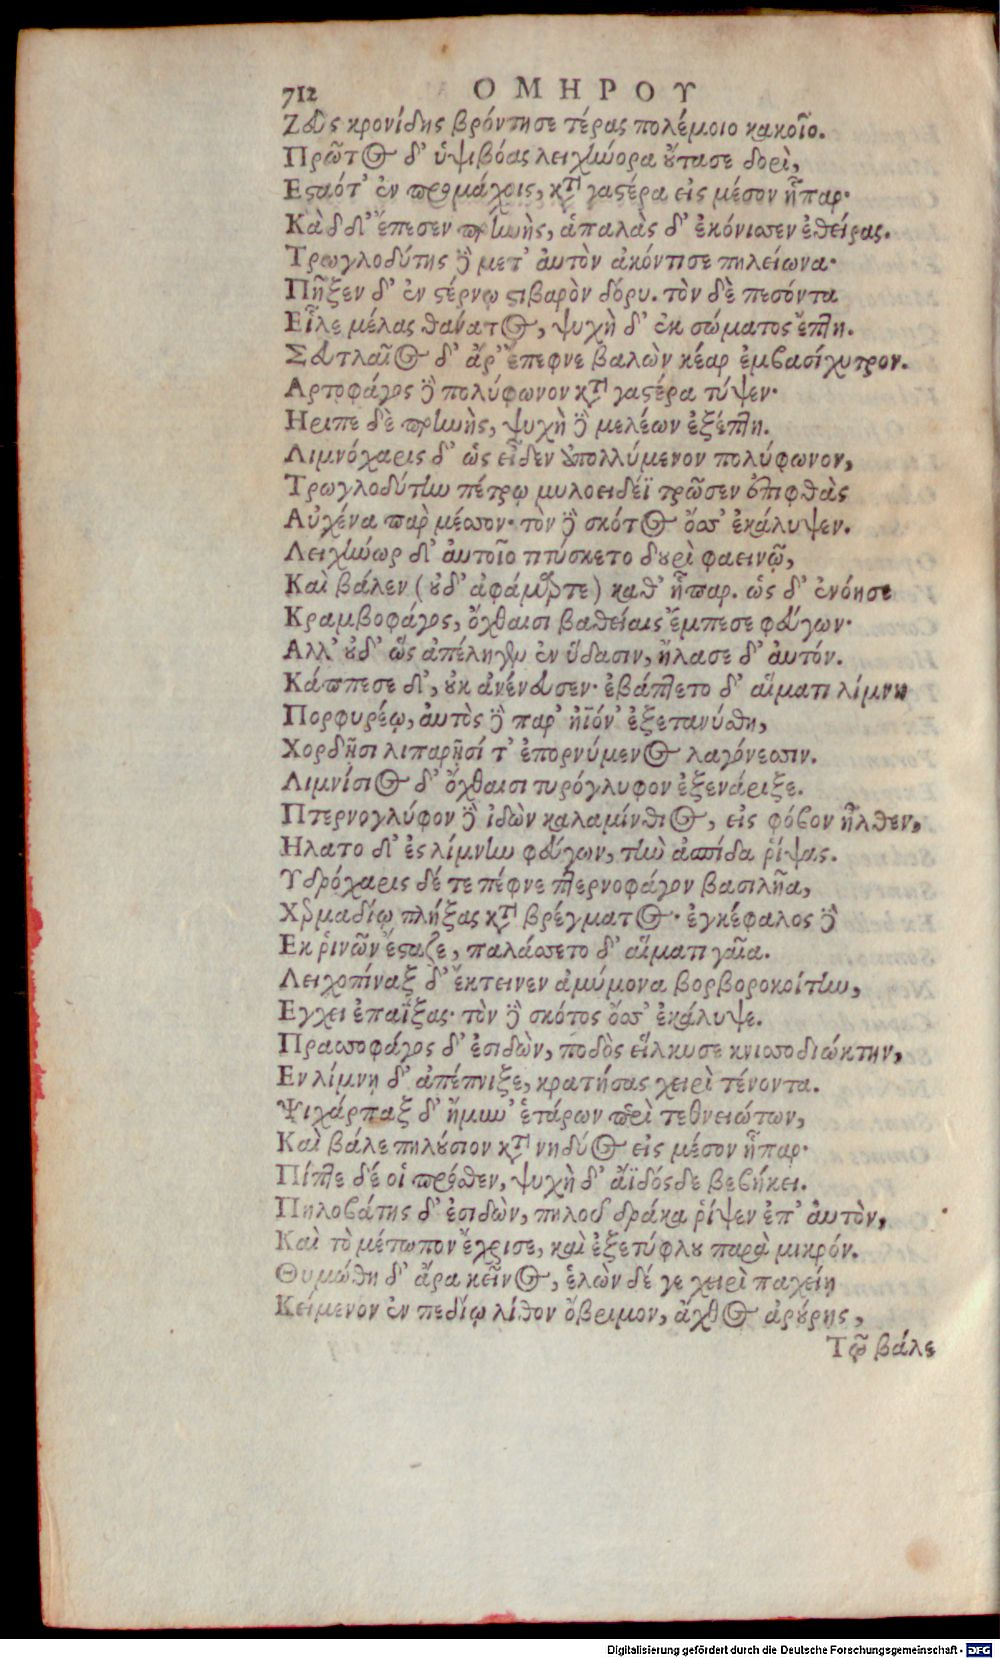 712 ΟΜΗΡΟΥ
Ζεὺς κρονίδης βρόντησε τέρας πολέμοιο κακοῖο.
Πρῶτος δ' ὑψιβόας λειχήνορα οὔτασε δορὶ,
Εσαότ' ἐν προμάχοις, κατὰ γαστέρα εἰς μέσον ἧπαρ·
Κὰδ δ' ἔπεσεν πρηνὴς, ἁπαλὰς δ' ἐκόνισσεν ἐθείρας.
Τρωγλοδύτης δὲ μετ' αὐτὸν ἀκόντισε πηλείωνα·
Πῆξεν δ' ἐν στέρνῳ στιβαρὸν δόρυ. τὸν δὲ πεσόντα
Εἷλε μέλας θάνατος, ψυχὴ δ' ἐκ σώματος ἔπτη.
Σευτλαῖος δ' ἄρ' ἔπεφνε βαλὼν κέαρ ἐμβασίχυτρον.
Αρτοφάγος δὲ πολύφωνον κατὰ γαστέρα τύψεν·
Ηριπε δὲ πρηνὴς, ψυχὴ δὲ μελέων ἐξέπτη.
Λιμνόχαρις δ' ὡς εἶδεν ἀπολλύμενον πολύφωνον,
Τρωγλοδύτην πέτρῳ μυλοειδέϊ τρῶσεν ἐπιφθὰς
Αὐχένα παρὰ μέσσον· τὸν δὲ σκότος ὄσσ' ἐκάλυψεν.
Λειχήνωρ δ' αὐτοῖο πτύσκετο δουρὶ φαεινῷ,
Καὶ βάλεν (οὐδ' ἀφάμαρτε) καθ' ἧπαρ. ὡς δ' ἐνόησε
Κραμβοφάγος, ὄχθαισι βαθείαις ἔμπεσε φεύγων·
Αλλ' οὐδ' ὣς ἀπέληγεν ἐν ὕδασιν, ἤλασε δ' αὐτόν.
Κάππεσε δ', οὐκ ἀνένευσεν· ἐβάπτετο δ' αἵματι λίμνη
Πορφυρέῳ, αὐτὸς δὲ παρ' ἠϊόν' ἐξετανύσθη,
Χορδῇσι λιπαρῇσί τ' ἐπορνύμενος λαγόνεσσιν.
Λιμνίσιος δ' ὄχθαισι τυρόγλυφον ἐξενάριξε.
Πτερνογλύφον δὲ ἰδὼν καλαμίνθιος, εἰς φόβον ἦλθεν,
Ηλατο δ' ἐς λίμνην φεύγων, τὴν ἀσπίδα ῥίψας.
Υδρόχαρις δέ τε πέφνε πτερνοφάγον βασιλῆα,
Χερμαδίῳ πλήξας κατὰ βρέγματος· ἐγκέφαλος δὲ
Εκ ῥινῶν ἔσταζε, παλάσσετο δ' αἵματι γαῖα.
Λειχοπίναξ δ' ἔκτεινεν ἀμύμονα βορβοροκοίτην,
Εγχει ἐπαΐξας· τὸν δὲ σκότος ὄσσ' ἐκάλυψε.
Πρασσοφάγος δ' ἐσιδὼν, ποδὸς εἵλκυσε κνισσοδιώκτην,
Εν λίμνῃ δ' ἀπέπνιξε, κρατήσας χειρὶ τένοντα.
Ψιχάρπαξ δ' ἤμυν' ἑτάρων περὶ τεθνειώτων,
Καὶ βάλε πηλούσιον κατὰ νηδύος εἰς μέσον ἧπαρ·
Πίπτε δέ οἱ πρόσθεν, ψυχὴ δ' ἄϊδόσδε βεβήκει.
Πηλοβάτης δ' ἐσιδὼν, πηλοῦ δράκα ῥίψεν ἐπ' αὐτὸν,
Καὶ τὸ μέτωπον ἔχρισε, καὶ ἐξετύφλου παρὰ μικρόν.
Θυμώθη δ' ἄρα κεῖνος, ἑλὼν δέ γε χειρὶ παχείῃ
Κείμενον ἐν πεδίῳ λίθον ὄβριμον, ἄχθος ἀρούρης,
Τῷ βάλε
Digitalisierung gefördert durch die Deutsche Forschungsgemeinschaft - DFG